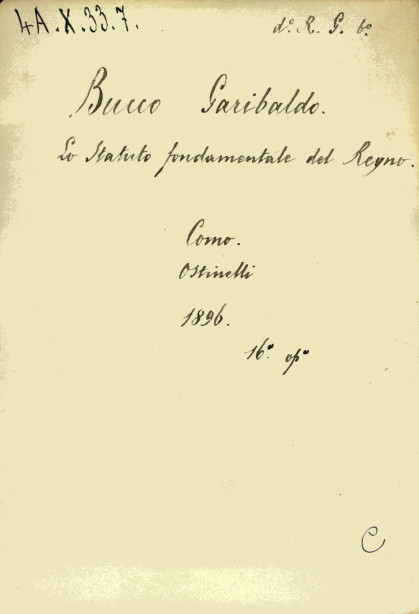 4A.X.33.7.
d.° R. G. 6.°
Bucco Garibaldo.
Lo Statuto fondamentale del Regno.
Como.
Ostinelli
1896.
16.° op.°
C